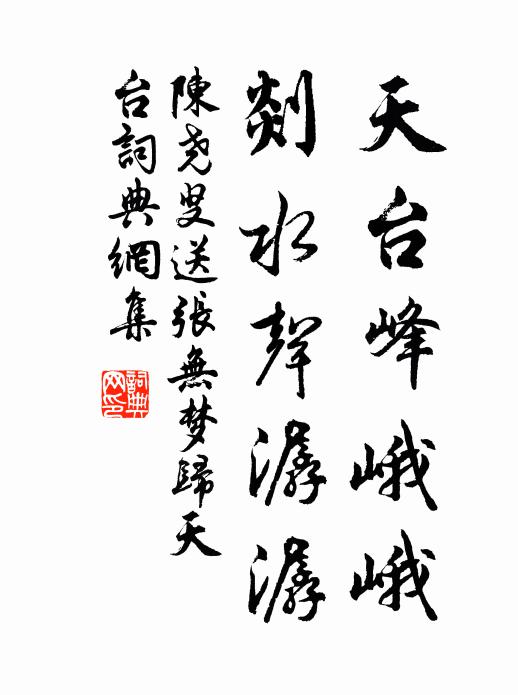 天台峰峨峨
剡水聲潺潺
陳尧叟送張無梦歸天
台詞典網集
詞典
网印